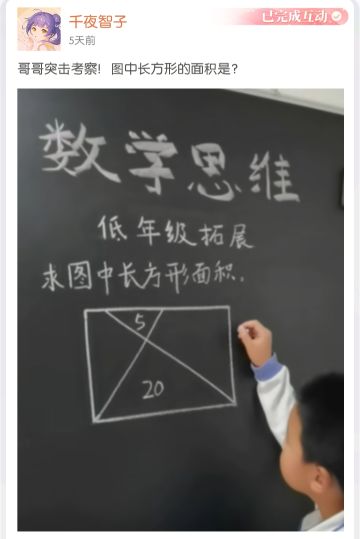 千夜智子
已完成互动
5天前
哥哥突击考察！图中长方形的面积是？
数学思维
低年级拓展
求图中长方形面积.
5
20